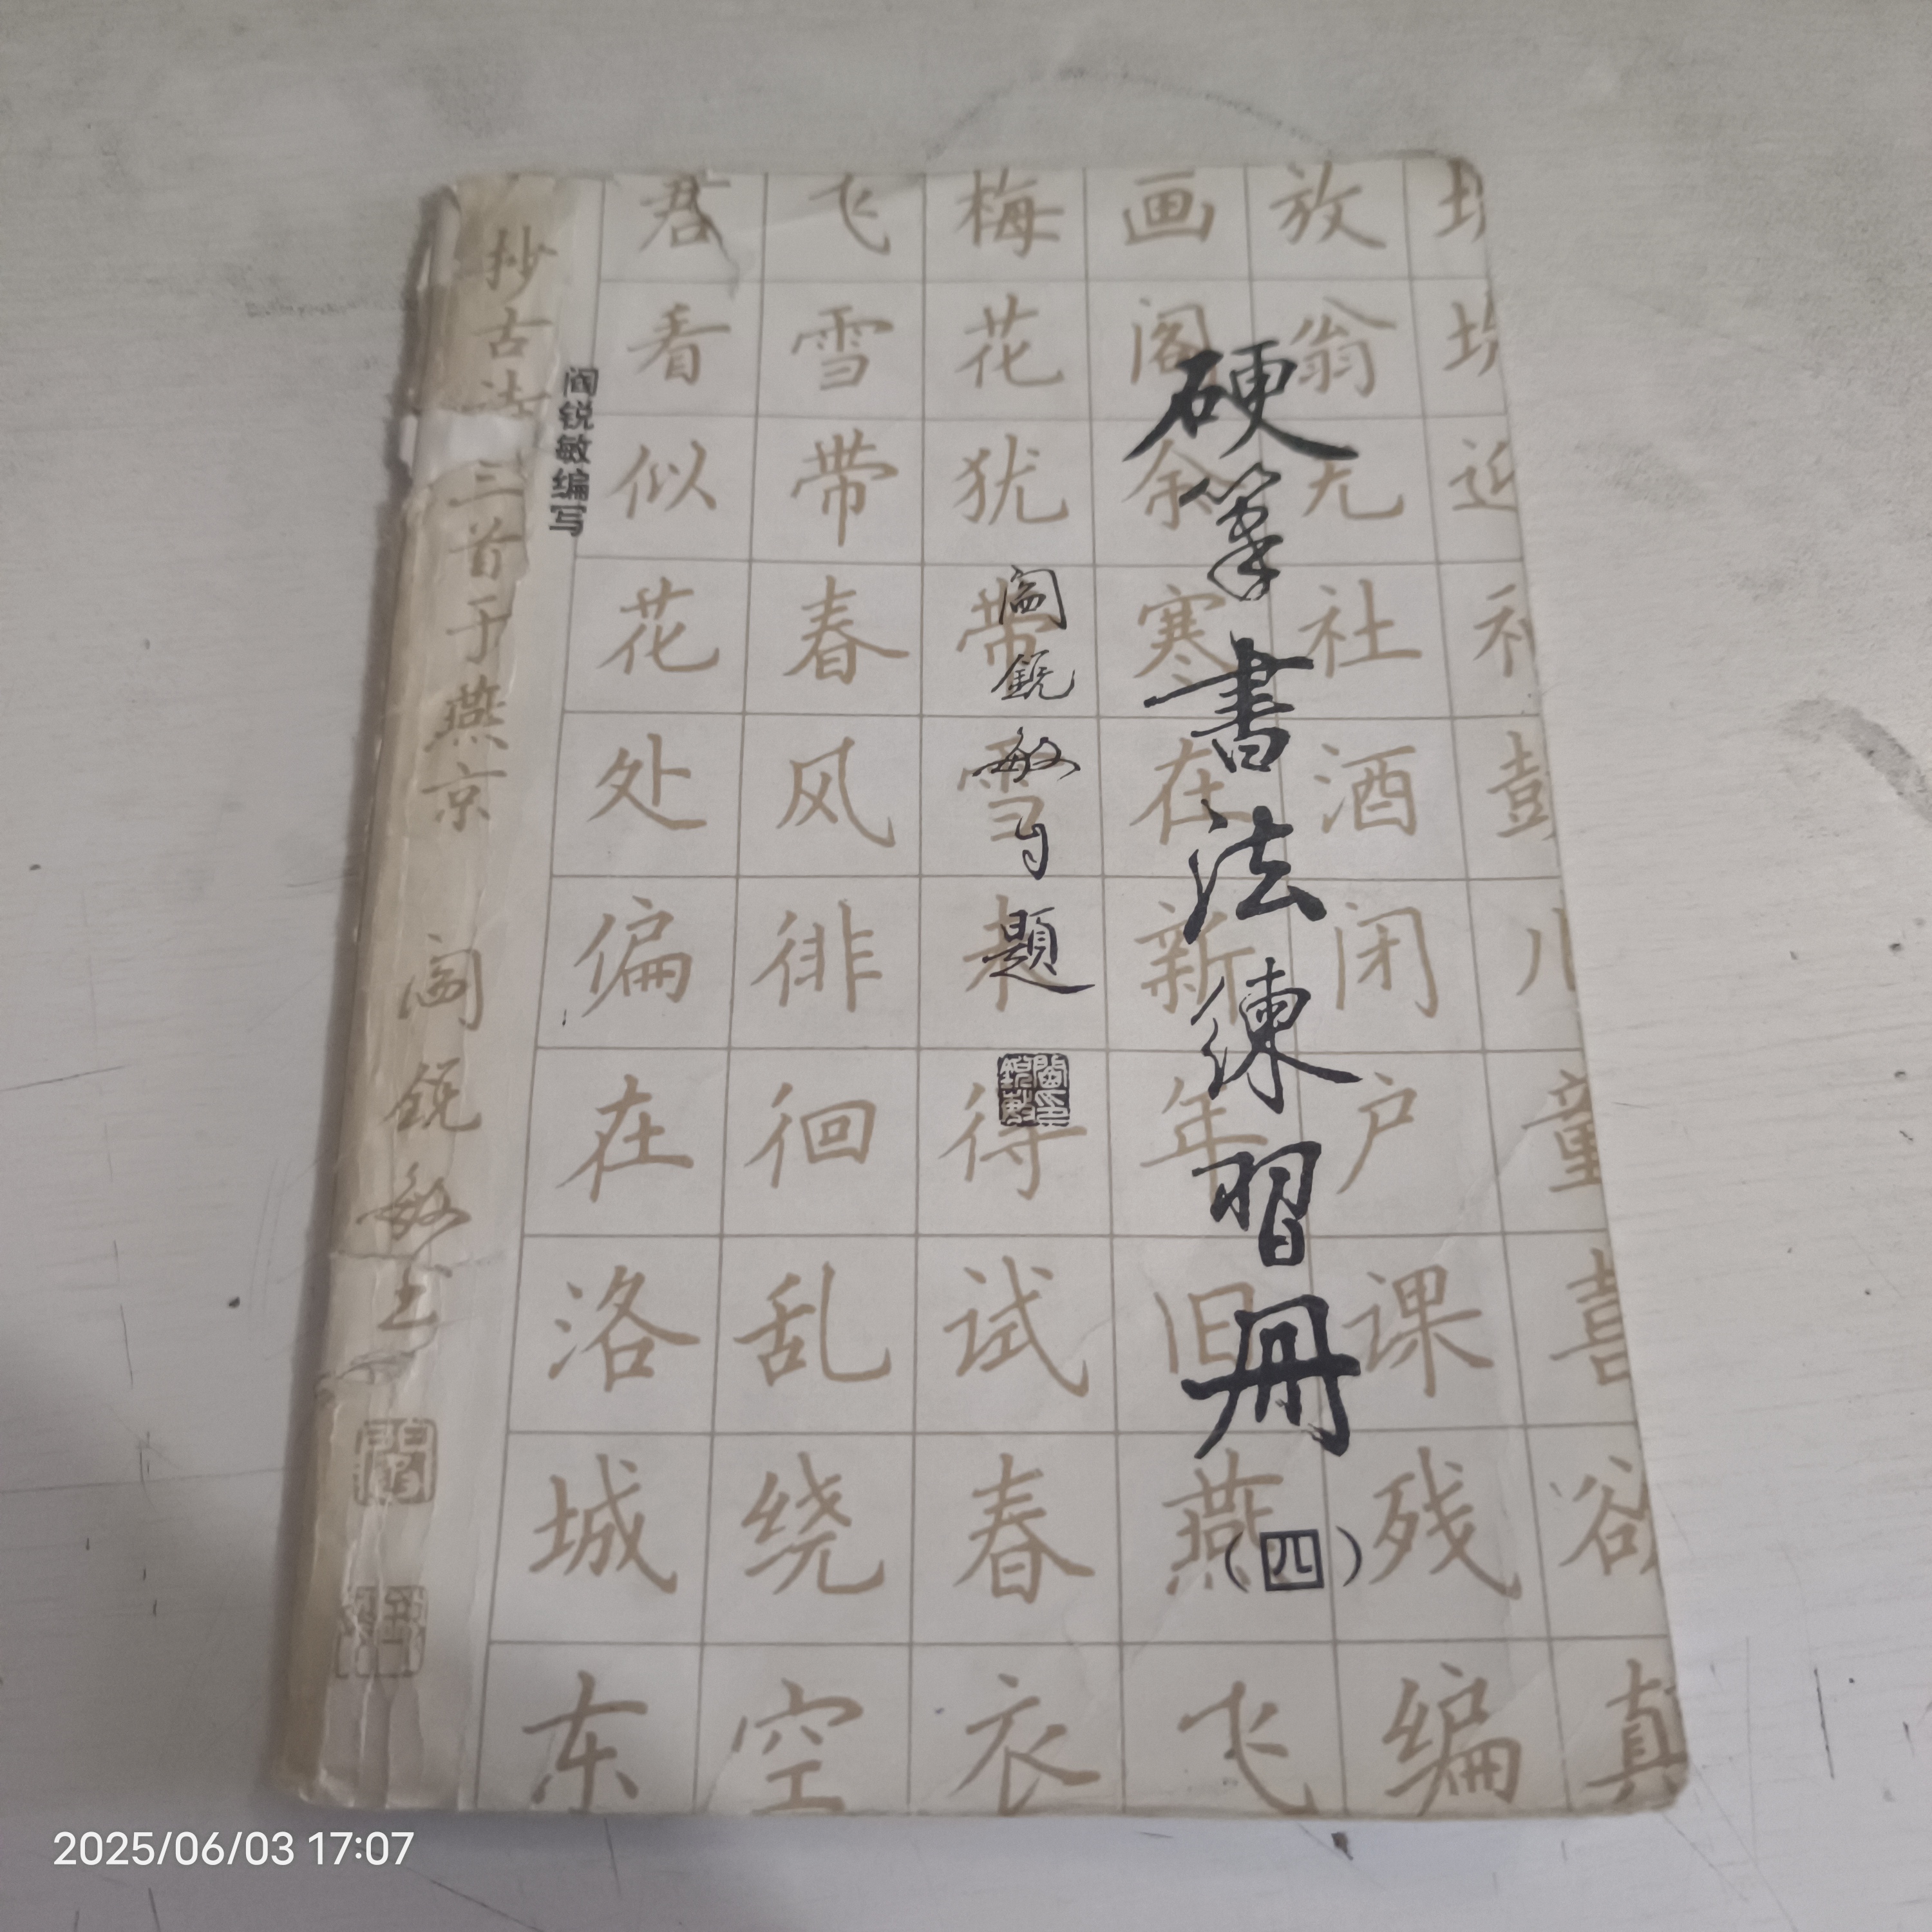 圵
坋
近
彭
儿
童
喜
谷
真
放翁
元
社酒闭户课残编
画阁余寒在新年旧燕飞
梅花犹带雪未得试春衣
飞雪带春风徘徊乱绕空
君看似花处偏在洛城东
硬筆書法練習册
(四)
阎锐敏自题
阎锐敏编写
抄古诗三首于燕京 阎锐敏书
2025/06/03 17:07